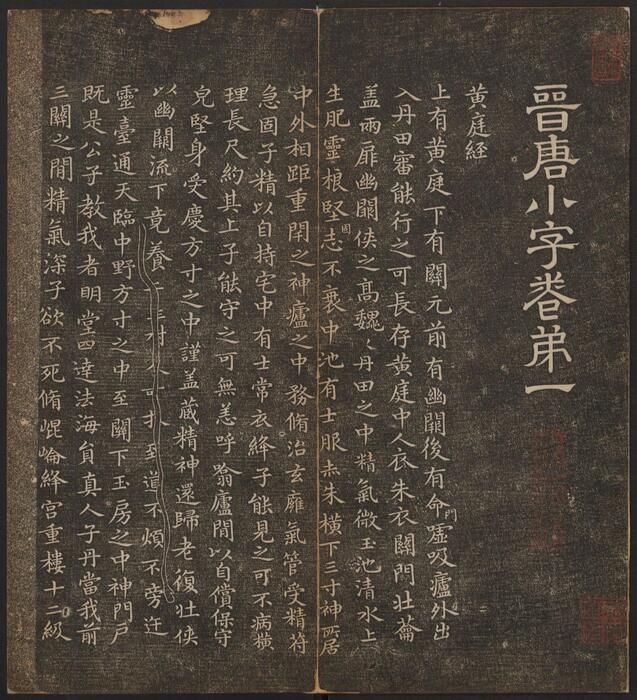 晉唐小字卷弟一
黄庭経
上有黄庭下有關元前有幽闕後有命門嘘吸廬外出
入丹田審能行之可長存黄庭中人衣朱衣關門壮蘥
盖兩扉幽闕俠之高魏〻丹田之中精氣微玉池清水上
生肥靈根堅固志不衰中池有士服赤朱橫下三寸神所居
中外相距重閇之神廬之中務脩治玄癕氣管受精符
急固子精以自持宅中有士常衣絳子能見之可不病橫
理長尺約其上子能守之可無恙呼噏廬間以自償保守
皃堅身受慶方寸之中謹盖蔵精神還歸老復壮俠
以幽闕流下竟養子玉樹人可扙至道不煩不旁迕
靈臺通天臨中野方寸之中至關下玉房之中神門户
既是公子教我者明堂四達法海負真人子丹當我前
三關之間精氣深子欲不死脩崐崘絳宫重樓十二級